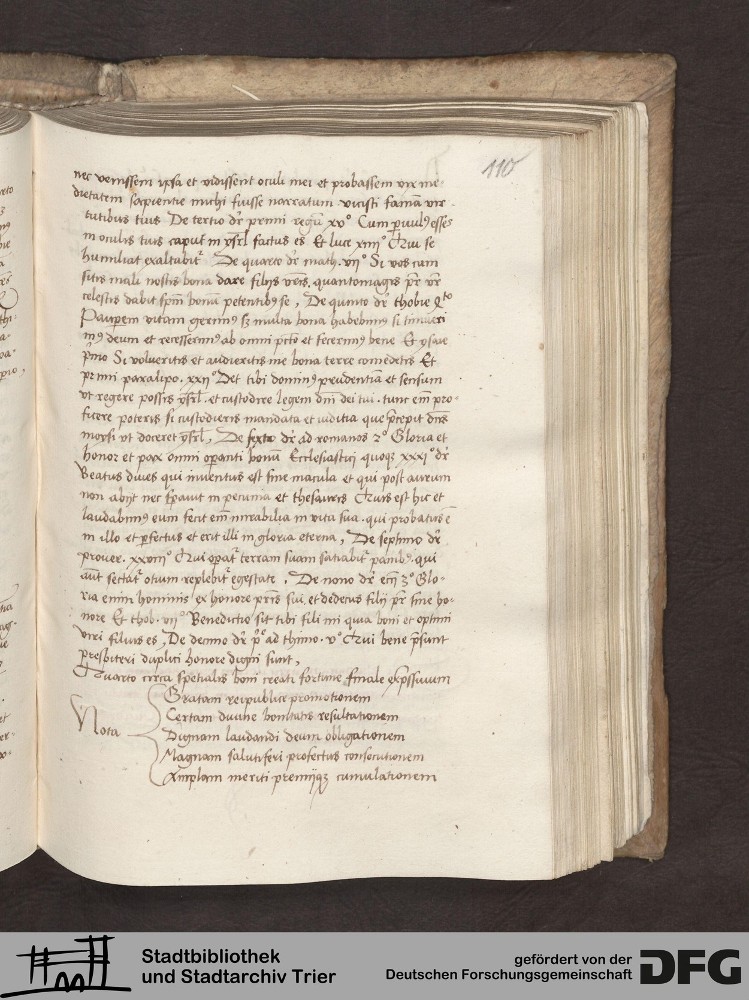 110
nec venissem ipsa et vidissent oculi mei et probassem vix me-
dietatem sapientie michi fuisse narratum vicisti famā vir
tutibus tuis De tertio dr̄ primi regū xvº Cum ꝑuulꝯ esses
in oculis tuis caput in ysrl̄ factus es Et luce xiiijº Qui se
humiliat exaltabitᷣ De quarto dr̄ math. vijº Si vos cum
sitis mali nostis bona dare filijs vr̄is. quantomagis pr̄ vr̄
celestis dabit spm̄ bonū petentibꝯ se, De quinto dr̄ thobie qᵗᵒ
Pauperem vitam gerimꝯ sꝫ multa bona habebimꝯ si timueri
mꝯ deum et recesserimꝯ ab omni pctō et fecerimꝯ bene Et ysaie
p̄mo Si volueritis et audieritis me bona terre comeditis Et
primi paralipo. xxijº Det tibi dominꝯ prudentiā et sensum
vt regere possis ysrl̄. et custodire legem dn̄i dei tui. tunc em̄ pro-
ficere poteris si custodieris mandata et iuditia que p̄cepit dn̄s
moysi vt doceret ysrl̄, De sexto dr̄ ad romanos 2º Gloria et
honor et pax omni oꝑanti bonū Ecclesiastici quoqꝫ xxxiº dr̄
Beatus diues qui inventus est sine macula et qui post aurum
non abijt nec sꝑauit in pecunia et thesauris Quis est hic et
laudabimꝯ eum fecit em̄ mirabilia in vita sua. qui probatus ē
in illo et ꝑfectus et erit illi in gloria eterna, De septimo dr̄
prouer. xxviijº Qui oꝑatᷣ terram suam satiabitᷣ panibꝯ. qui
aut̄ sectatᷣ otium replebitᷣ egestate, De nono dr̄ eccī 3º Glo-
ria enim hominis ex honore pr̄is sui. et dedecus filij pr̄ sine ho-
nore Et thob. vijº Benedictio sit tibi fili mi quia boni et optimi
viri filius es, De decimo dr̄ pº ad thimo. vº Qui bene p̄sunt
presbiteri duplici honore digni sunt,
Quarto circa spetialis boni creati fortune finale exp̄ssiuum
Nota
Gratam reipublice promotionem
Certam diuine bonitatis resultationem
Dignam laudandi deum obligationem
Magnam salutiferi profectus consecutionem
Amplam meriti premijqꝫ cumulationem
Stadtbibliothek
und Stadtarchiv Trier
gefördert von der
Deutschen Forschungsgemeinschaft
DFG